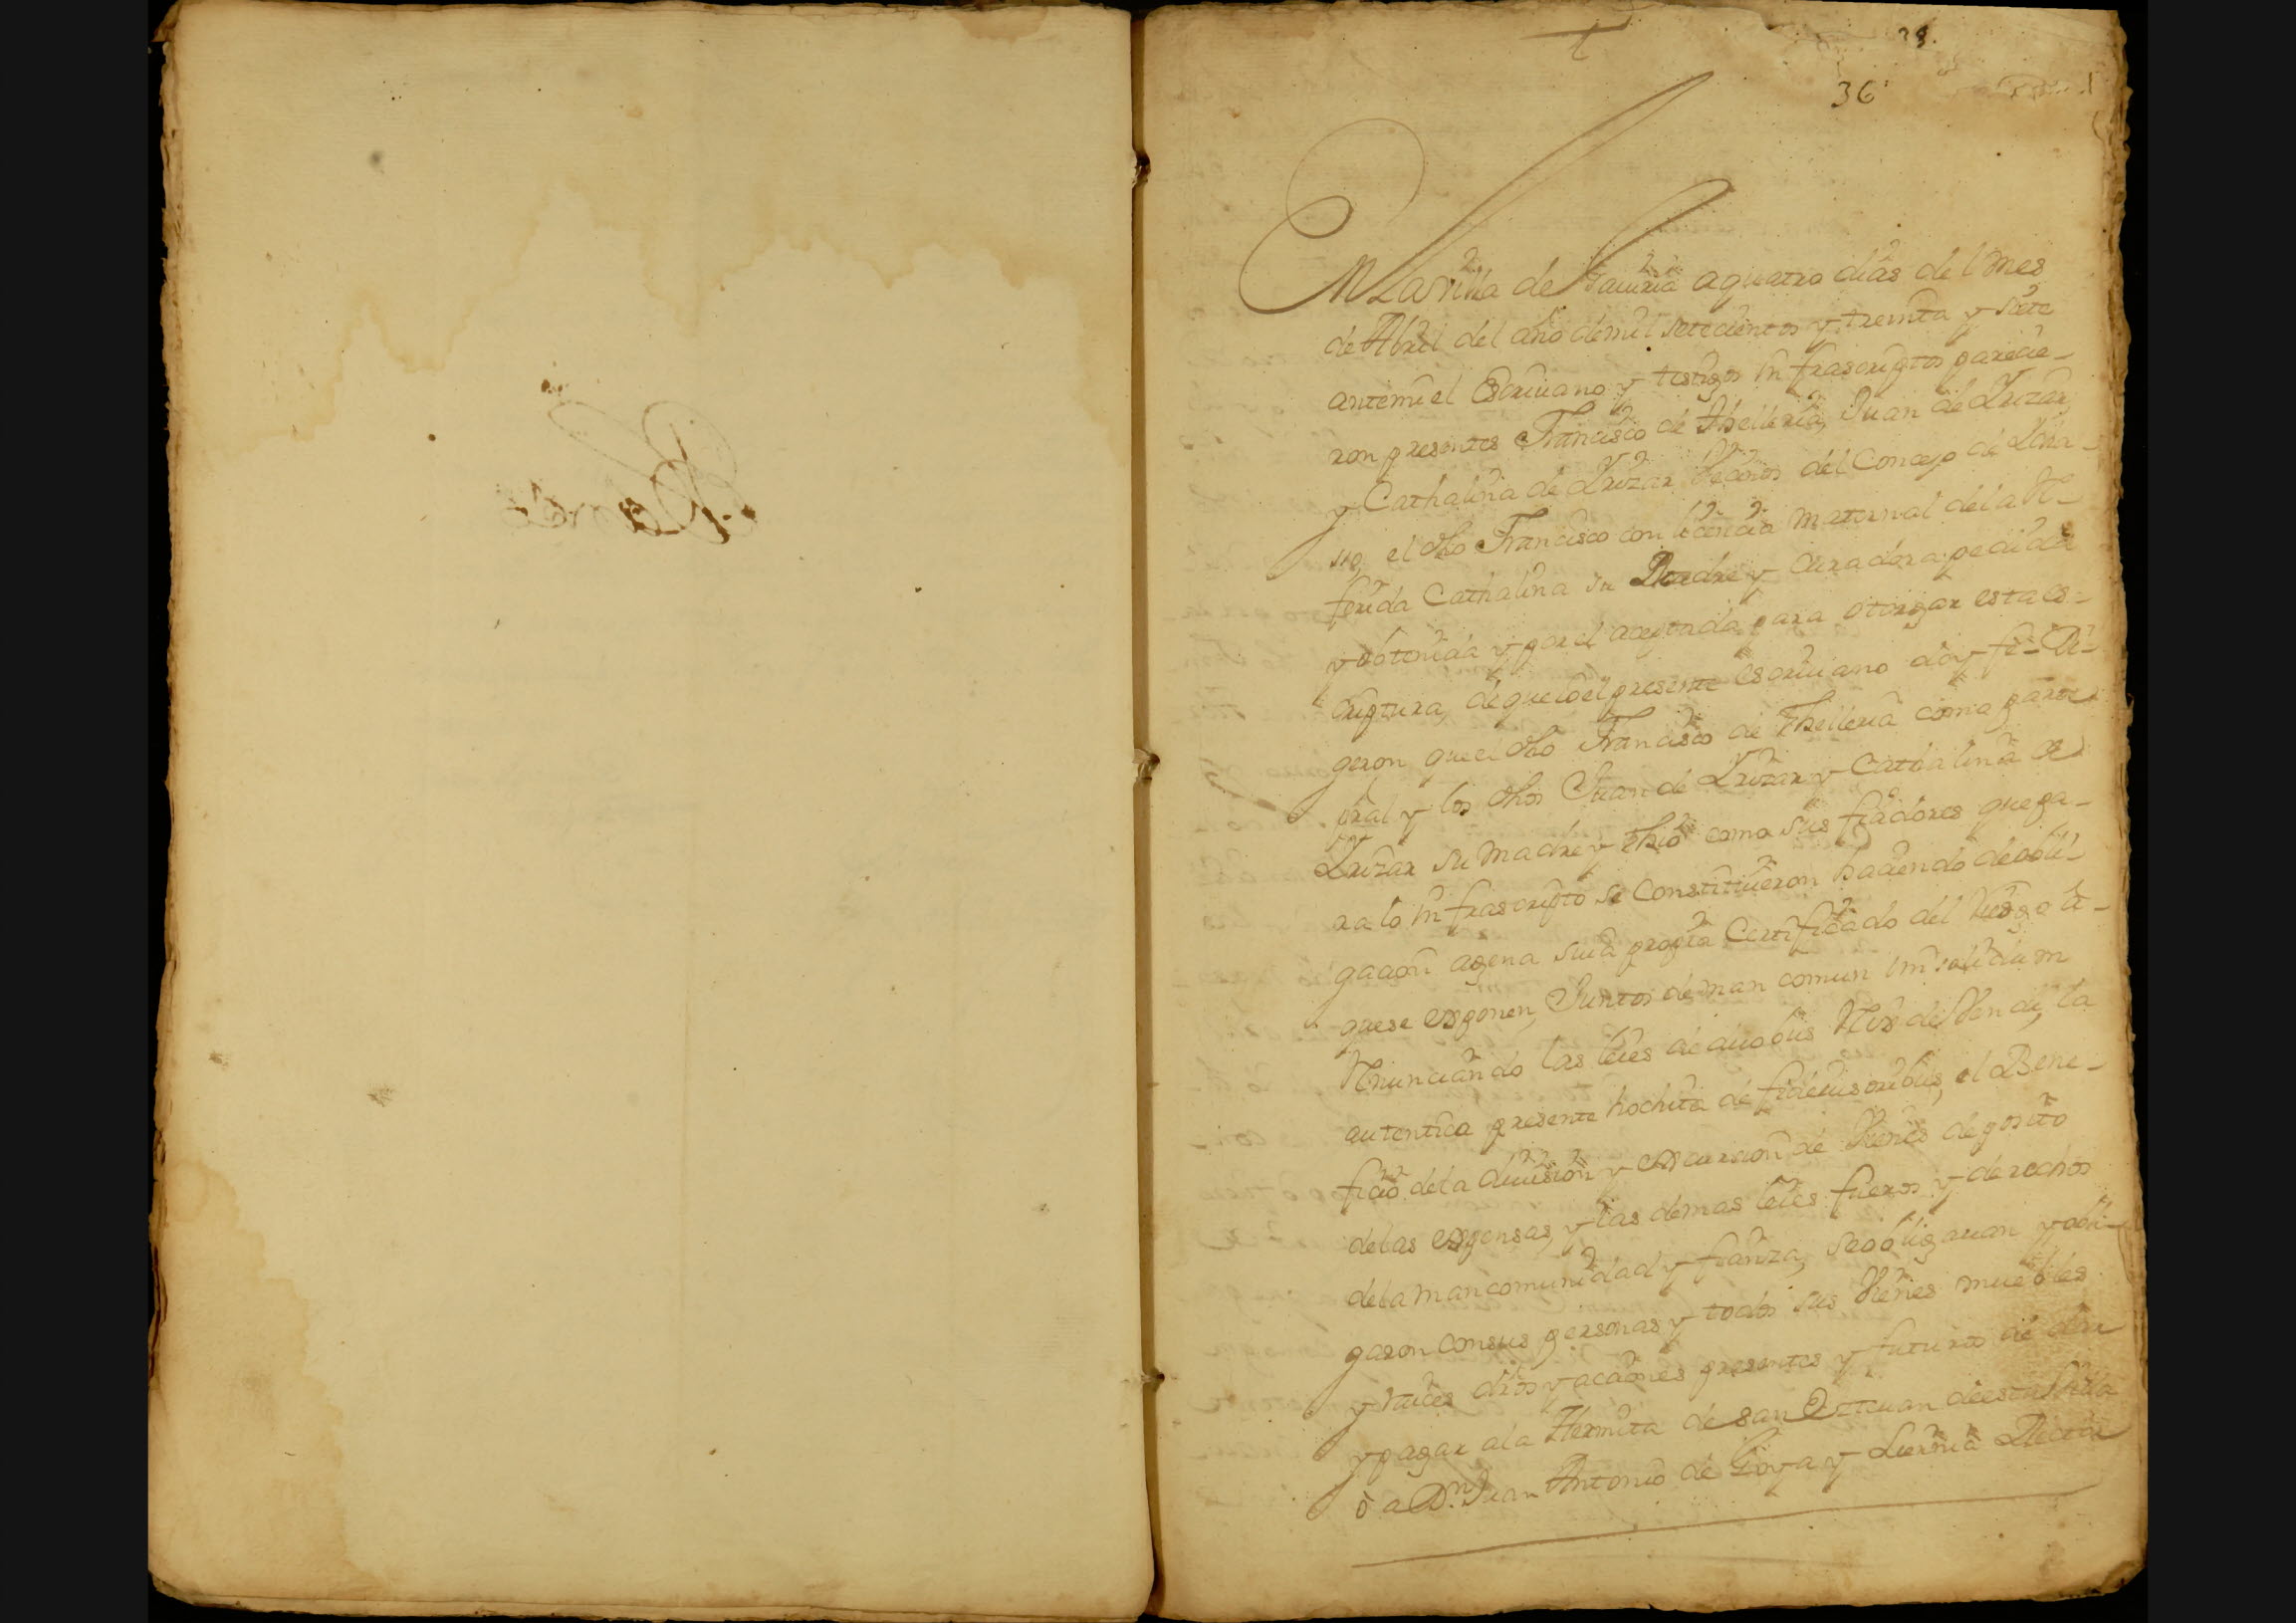 36
En La Villa de Saluia a quatro dias del mes
de Abril del año de mil setecientos y treinta y siete
ante mi el Escriuano y testigos infrascriptos parecie-
ron presentes Francisco de Thelleria, Juan de Yrizar,
y Cathalina de Yrizar Vecinos del Concejo de
sto, el dho Francisco con licencia maternal de la Re-
ferida Cathalina su Madre y Curadora pedida
y obtenida y por el aceptada para otorgar esta es-
criptura, de que io el presente escriuano doy fe = Di-
geron que el dho Francisco de Thelleria como parte
pral y los dhos Juan de Yrizar y Cathalina de
Yrizar su madre y thio como sus fiadores que pa-
ra lo infrascripto se constituieron haciendo de obli-
gacion agena suia propia Certificado del riesgo a-
que se exponen, Juntos de man comun insolidum
Renunciando las leies de duobus Rex de Vendi, la
autentica presente hochita de fideiusoribus, el Bene-
ficio dela diuision y excursion de Vienes deposito
delas expensas, y las demas leies fueros y derechos
dela mancomunidad y fianza, se obligauan y obli-
garon con sus personas y todos sus Vienes muebles
y raices dros y acciones presentes y futuros de dar
y pagar ala Hermita de san Esteuan de esta Villa
ô a Dn. Juan Antonio de Goya y Rector